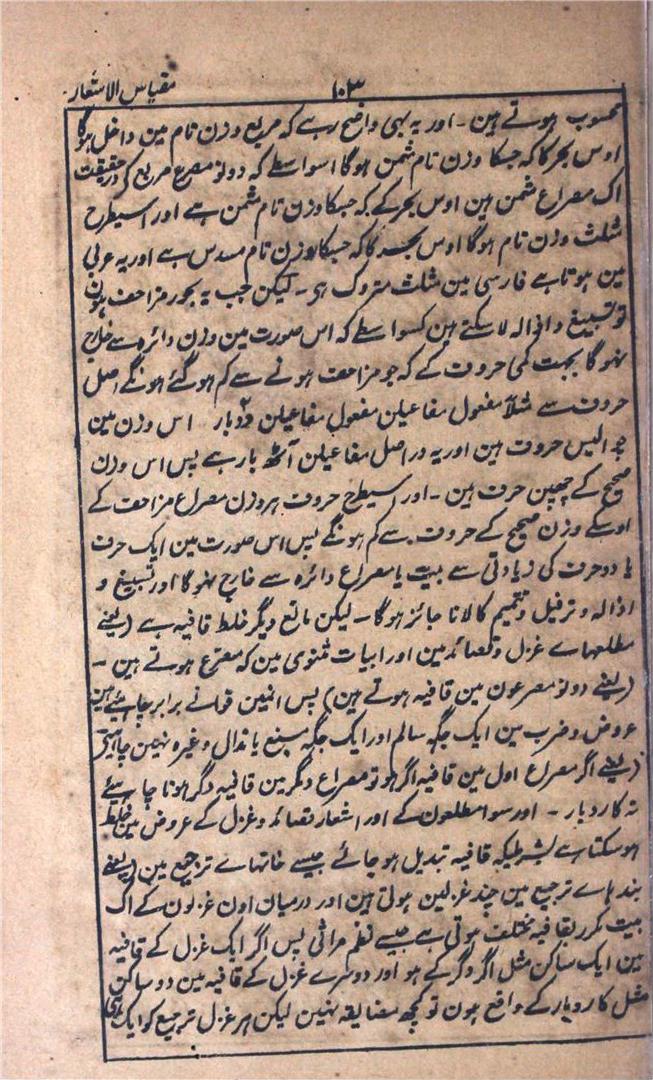 ۱۰۳ مقیاس الاشعار
محسوب ہوتے ہین ۔ اور یہ بہی واضح رہے کہ مربع وزن تام مین داخل ہوگا
اوس بحر کا کہ جسکا وزن تام مثمن ہوگا اسواسطے کہ دونو مصرع مربع کی درحقیقت
اک مصراع مثمن ہین اوس بحر کے کہ جسکا وزن تام مثمن ہے اور اسیطرح
مثلث وزن تام ہوگا اوس بحر کا کہ جسکا وزن تام مسدس ہے اور یہ عربی
مین ہوتا ہے فارسی مین مثلث متروک ہی ۔ لیکن جب یہ بحور مزاحف ہون
تو تسبیغ و اذالہ لا سکتے ہین کسواسطے کہ اس صورت مین وزن دائرہ سے خارج
نہوگا بجہت کمی حروف کے کہ جو مزاحف ہونے سے کم ہو گئے ہونگے اصل
حروف سے مثلاً مفعول مفاعیلن مفعول مفاعیلن دوبار اس وزن مین
چوالیس حروف ہین اور یہ در اصل مفاعیلن آٹھ بار ہے پس اس وزن
صحیح کے چھپن حرف ہین ۔ اور اسیطرح حروف ہر وزن مصراع مزاحف کے
اوسکے وزن صحیح کے حروف سے کم ہونگے پس اس صورت مین ایک حرف
یا دو حرف کی زیادتی سے بیت یا مصراع دائرہ سے خارج نہوگا اور تسبیغ و
اذالہ و ترفیل و تتمیم کا لانا جائز ہوگا ۔ لیکن مانع دیگر خلط قافیہ ہے (یعنے
مطلعہاے غزل و قصائد مین اور ابیات مثنوی مین کہ مصرّع ہوتے ہین ۔
(یعنے دونو مصرعون مین قافیہ ہوتے ہین) پس انہین قوافے برابر چاہئے ہین
عروض و ضرب مین ایک جگہ سالم اور ایک جگہ مسبغ یا مذال وغیرہ نہین چاہیے
(یعنے اگر مصراع اول مین قافیہ اگر ہو تو مصراع دگر مین قافیہ دگر ہونا چاہئے
نہ کاروبار ۔ اور سوا مطلعون کے اور اشعار قصائد و غزل کے عروض مین خلط
ہو سکتا ہے بشرطیکہ قافیہ تبدیل ہو جائے جیسے خانہاے ترجیع مین (یعنے
بندہاے ترجیع مین چند غزلین ہوتی ہین اور درمیان اون غزلون کے اک
بیت مکرر بقافیہ مختلف ہوتی ہے جیسے نظم مراثی پس اگر ایک غزل کے قافیہ
مین ایک ساکن مثل اگر و گر کے ہو اور دوسرے غزل کے قافیہ مین دو ساکن
مثل کاروبار کے واقع ہون تو کچھ مضایقہ نہین لیکن ہر غزل ترجیع کو ایک